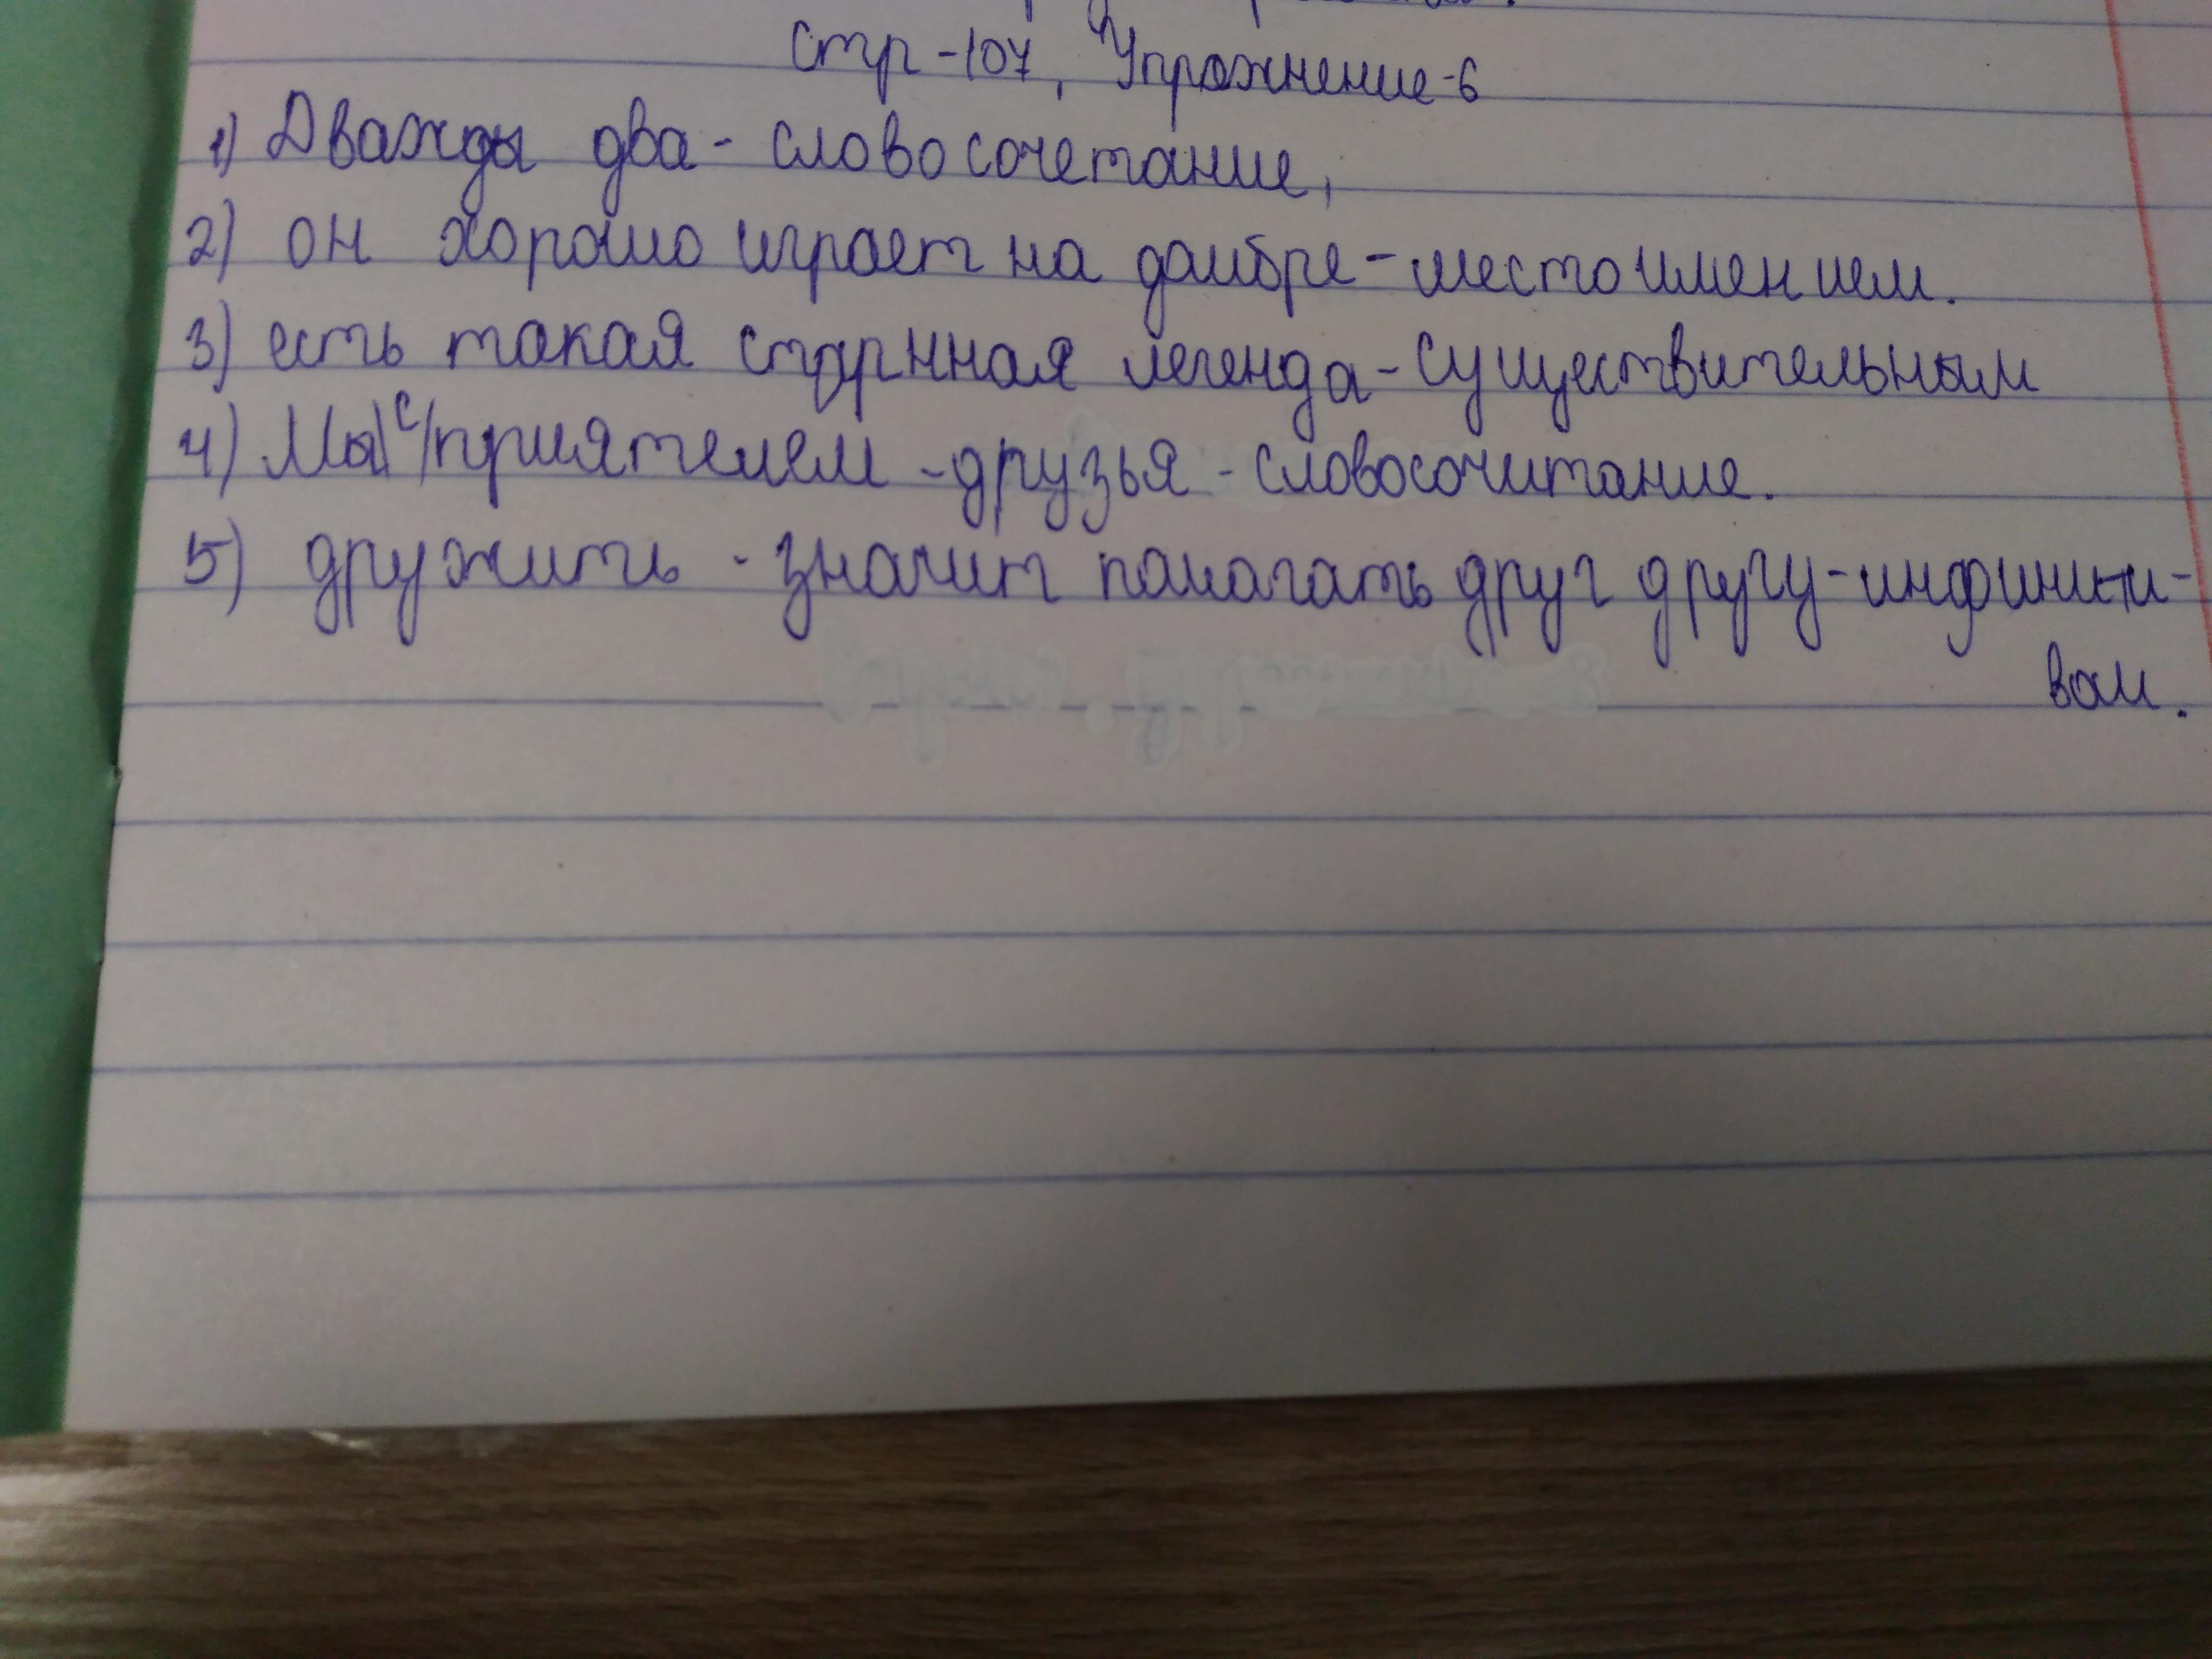 стр-107, Упражнение-6
1) Дважды два - словосочетание,
2) он хорошо играет на домбре - местоимением.
3) есть такая старнная легенда - существительным
4) Мы с приятелем - друзья - словосочитание.
5) дружить - значит помагать друг другу - инфинити-
вом.